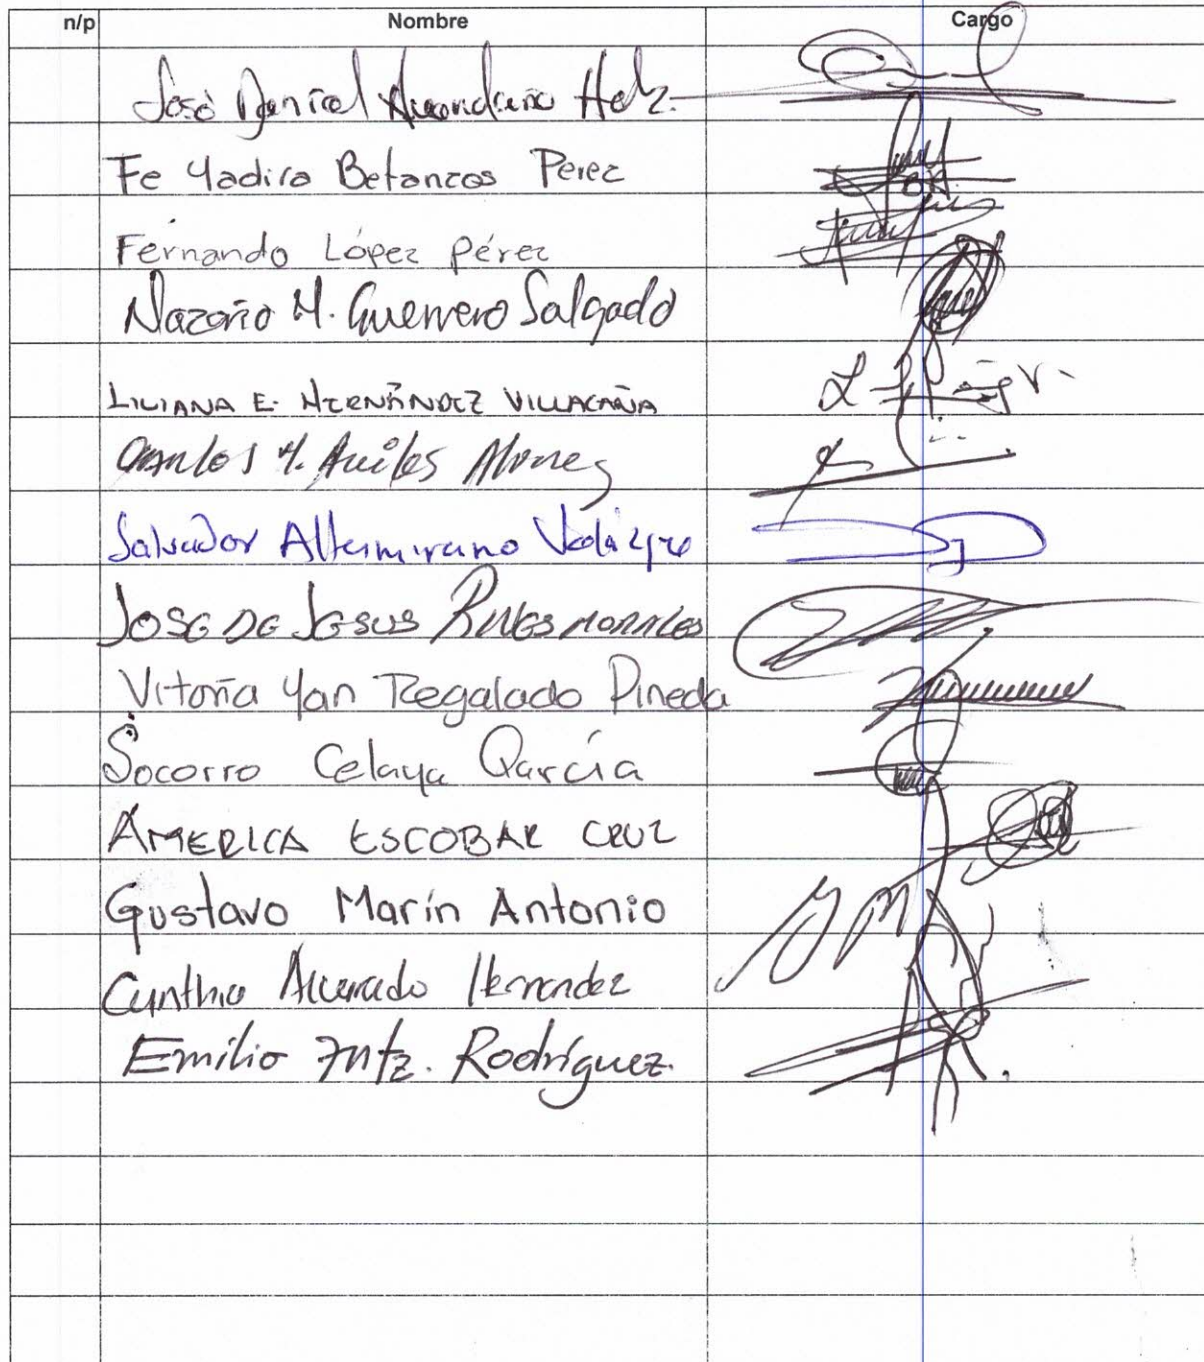 n/p Nombre Cargo
José Daniel Avendaño Hdz.
Fe Yadira Betanzos Perez
Fernando López pérez
Nazario M. Guerrero Salgado
LILIANA E. HERNÁNDEZ VILLACAÑA
Carlos Aviles
Salvador Altamirano
JOSE DE JESUS MORALES
Vitoria Yan Regalado Pineda
Socorro Celaya García
AMERICA ESCOBAR CRUZ
Gustavo Marín Antonio
Cynthia Alvarado Hernandez
Emilio Rodríguez.